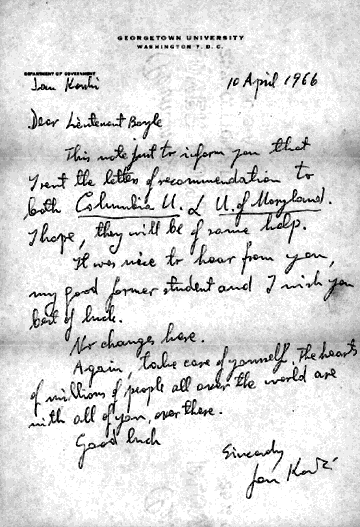 GEORGETOWN UNIVERSITY
WASHINGTON 7, D. C.
DEPARTMENT OF GOVERNMENT
Jan Karski
10 April 1966
Dear Lieutenant Boyle
This note just to inform you that
I sent the letters of recommendation to
both Columbia U. & U. of Maryland.
I hope, they will be of some help.
It was nice to hear from you,
my good former student and I wish you
best of luck.
No changes here.
Again, take care of yourself. The hearts
of millions of people all over the world are
with all of you, over there.
Good luck
Sincerely
Jan Karski